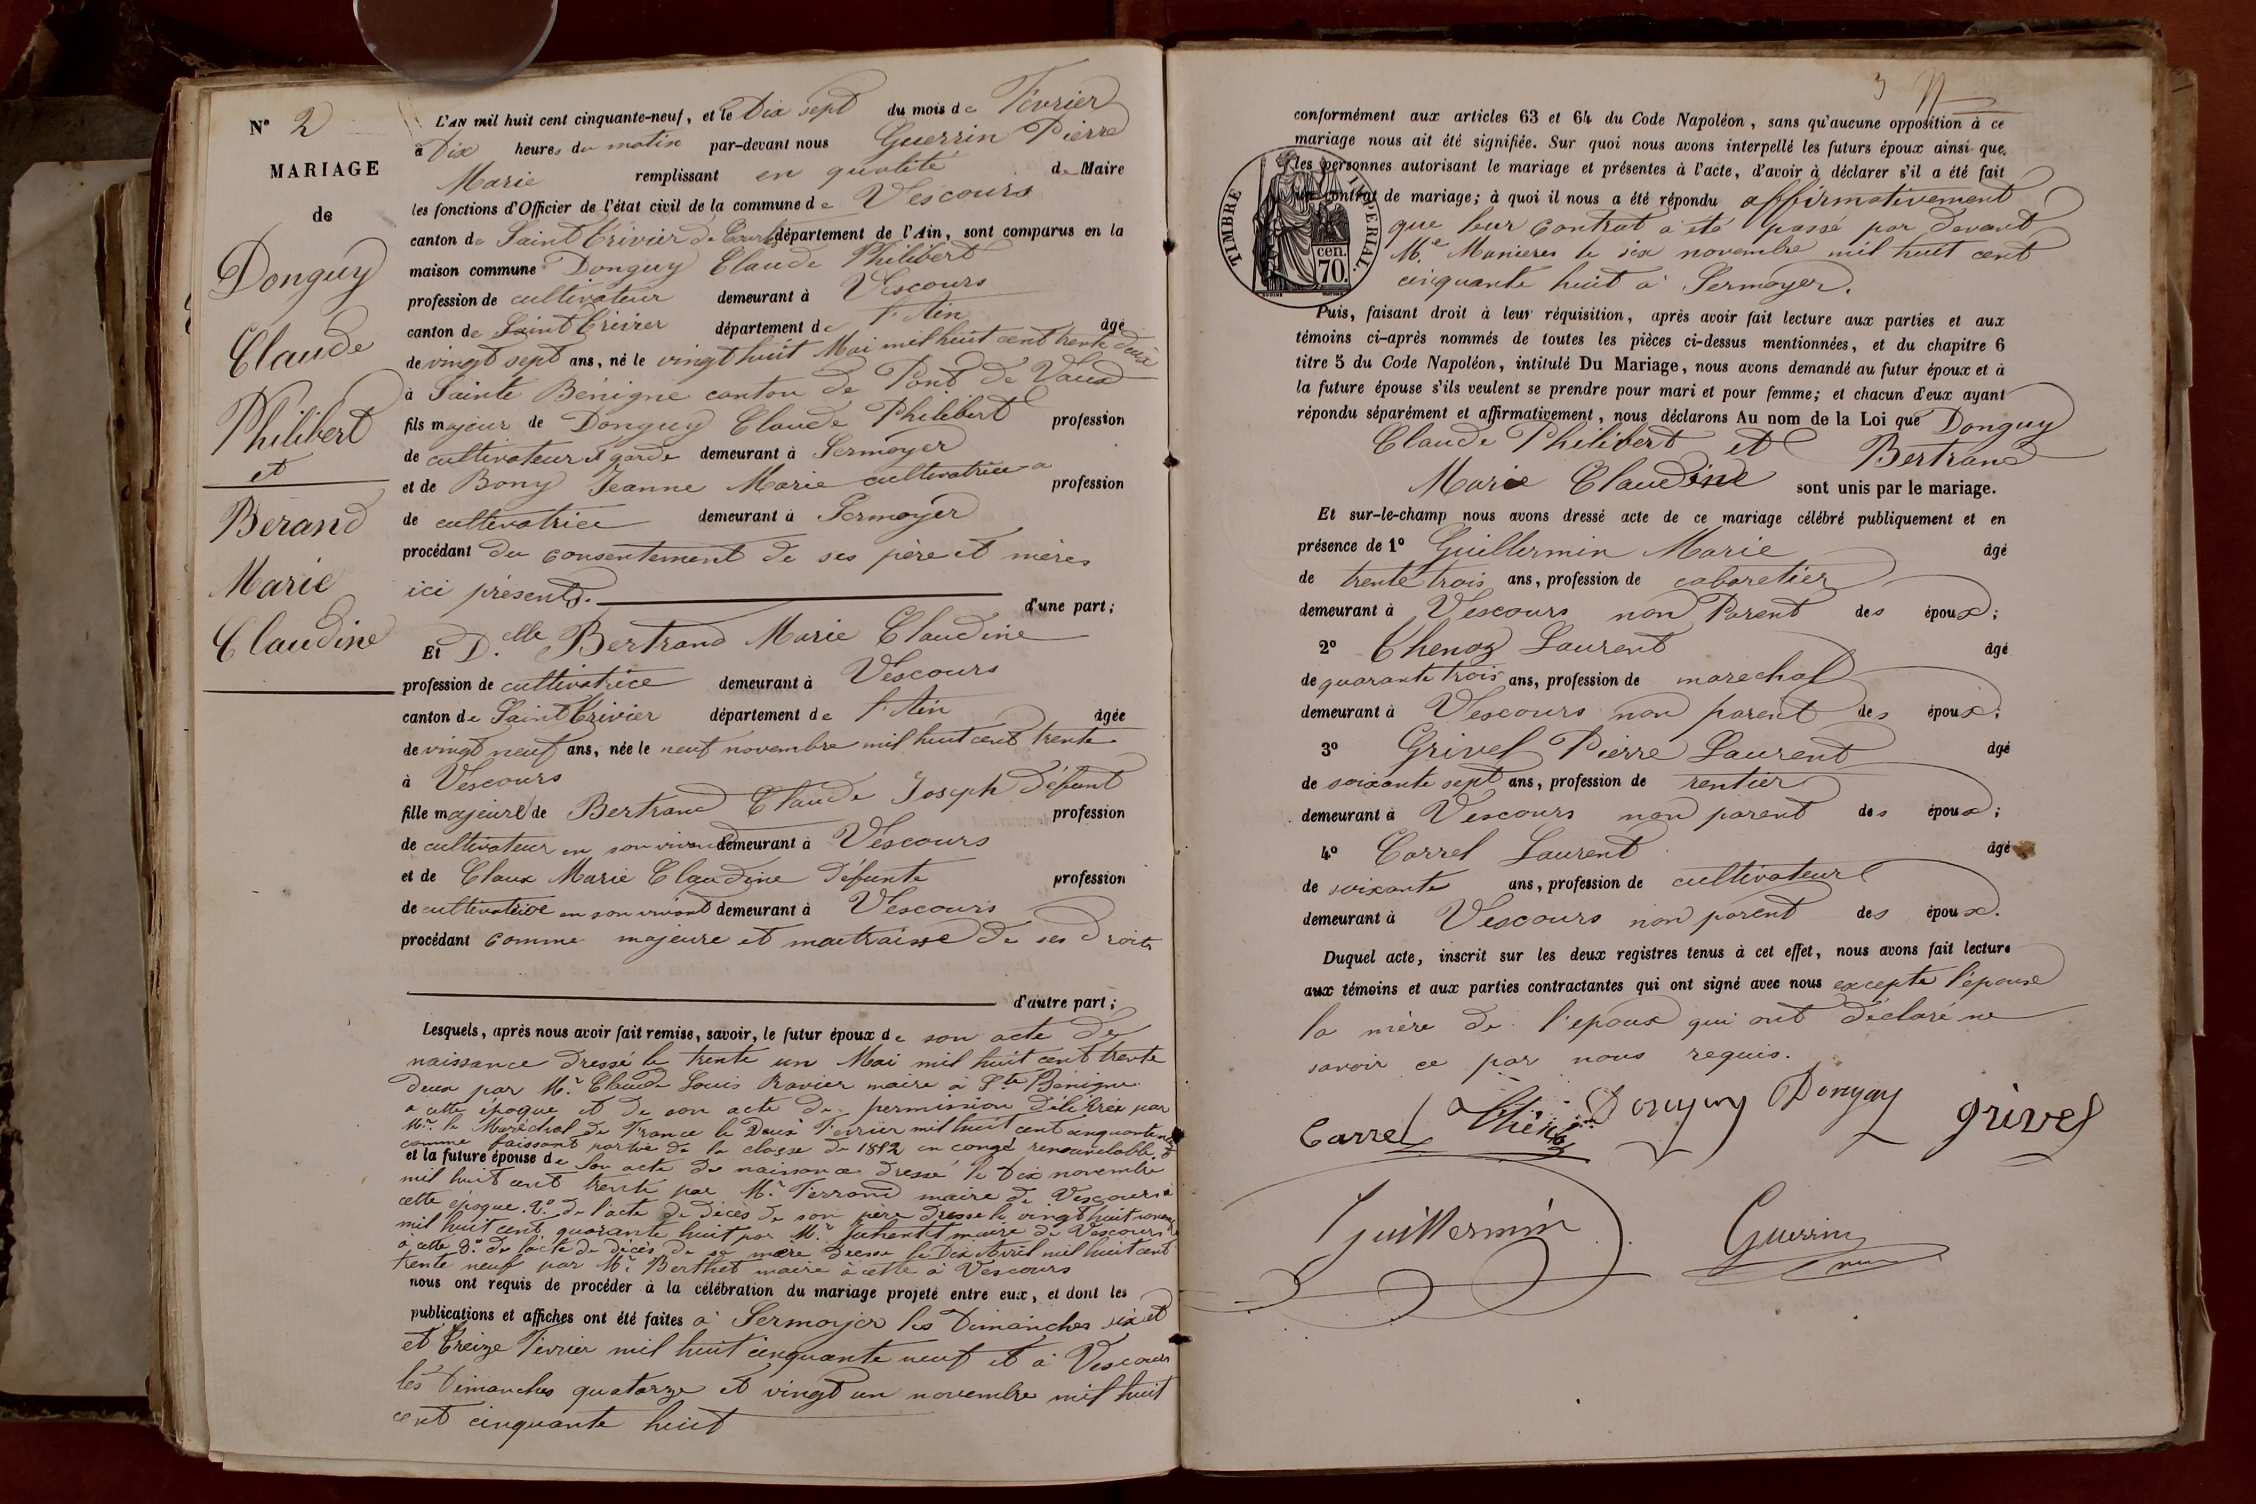 N° 2
MARIAGE
de
Donguy
Claude
Philibert
et
Berand
Marie
Claudine
L'AN mil huit cent cinquante-neuf, et le Dix sept du mois de Février
à Dix heures du matin par-devant nous Guerrin Pierre
Marie remplissant en qualité de Maire
les fonctions d'Officier de l'état civil de la commune de Vescours
canton de Saint Trivier de Courtes département de l'Ain, sont comparus en la
maison commune Donguy Claude Philibert
profession de cultivateur demeurant à Vescours
canton de Saint Trivier département de l'Ain âgé
de vingt sept ans, né le vingt huit Mai mil huit cent trente deux
à Sainte Bénigne canton de Pont de Vaux
fils majeur de Donguy Claude Philibert profession
de cultivateur et garde demeurant à Sermoyer
et de Bony Jeanne Marie cultivatrice profession
de cultivatrice demeurant à Sermoyer
procédant du consentement de ses père et mères
ici présents. d'une part;
Et D.elle Bertrand Marie Claudine
profession de cultivatrice demeurant à Vescours
canton de Saint Trivier département de l'Ain âgée
de vingt neuf ans, née le neuf novembre mil huit cent trente
à Vescours
fille majeure de Bertrand Claude Joseph défunt profession
de cultivateur en son vivant demeurant à Vescours
et de Claux Marie Claudine défunte profession
de cultivatrice en son vivant demeurant à Vescours
procédant comme majeure et maitraisse de ses droits
d'autre part;
Lesquels, après nous avoir fait remise, savoir, le futur époux de son acte de
naissance dressé le trente un Mai mil huit cent trente
deux par Mr. Claude Louis Ravier maire à Ste Bénigne
a cette époque et de son acte de permission délivrée par
Mr. le Maréchal de France le Deux Fevrier mil huit cent cinquante neuf
comme faissant partie de la classe de 1852 en congé renouvelable
et la future épouse de son acte de naissance dressé le Dix novembre
mil huit cent trente par Mr. Ferrand maire de Vescours à
cette époque. 2° de l'acte de décès de son père dressé le vingt huit novembre
mil huit cent quarante huit par Mr. maire de Vescours
à cette 3° de l'acte de décès de sa mère dressé le Dix Avril mil huit cent
trente neuf par Mr. Berthet maire à cette à Vescours
nous ont requis de procéder à la célébration du mariage projeté entre eux, et dont les
publications et affiches ont été faites à Sermoyer les Dimanches six et
et treize Février mil huit cinquante neuf et à Vescours
les Dimanches quatorze et vingt un novembre mil huit
cent cinquante huit
3
conformément aux articles 63 et 64 du Code Napoléon, sans qu'aucune opposition à ce
mariage nous ait été signifiée. Sur quoi nous avons interpellé les futurs époux ainsi que
les personnes autorisant le mariage et présentes à l'acte, d'avoir à déclarer s'il a été fait
un contrat de mariage; à quoi il nous a été répondu affirmativement
que leur contrat a été passé par devant
M.e Manieres le six novembre mil huit cent
cinquante huit à Sermoyer.
TIMBRE IMPERIAL.
cen.
70.
Puis, faisant droit à leur réquisition, après avoir fait lecture aux parties et aux
témoins ci-après nommés de toutes les pièces ci-dessus mentionnées, et du chapitre 6
titre 5 du Code Napoléon, intitulé Du Mariage, nous avons demandé au futur époux et à
la future épouse s'ils veulent se prendre pour mari et pour femme; et chacun d'eux ayant
répondu séparément et affirmativement, nous déclarons Au nom de la Loi que Donguy
Claude Philibert et Bertrand
Marie Claudine sont unis par le mariage.
Et sur-le-champ nous avons dressé acte de ce mariage célébré publiquement et en
présence de 1° Guillermin Marie âgé
de trente trois ans, profession de cabaretier
demeurant à Vescours non Parent des époux;
2° Chenoz Laurent âgé
de quarante trois ans, profession de marechal
demeurant à Vescours non parent des époux;
3° Grivel Pierre Laurent âgé
de soixante sept ans, profession de rentier
demeurant à Vescours non parent des époux;
4° Carrel Laurent âgé
de soixante ans, profession de cultivateur
demeurant à Vescours non parent des époux.
Duquel acte, inscrit sur les deux registres tenus à cet effet, nous avons fait lecture
aux témoins et aux parties contractantes qui ont signé avec nous excepté l'épouse
la mère de l'époux qui ont déclaré ne
savoir ce par nous requis.
Carrel Donguy Donguy grivel
Guillermin Guerrin